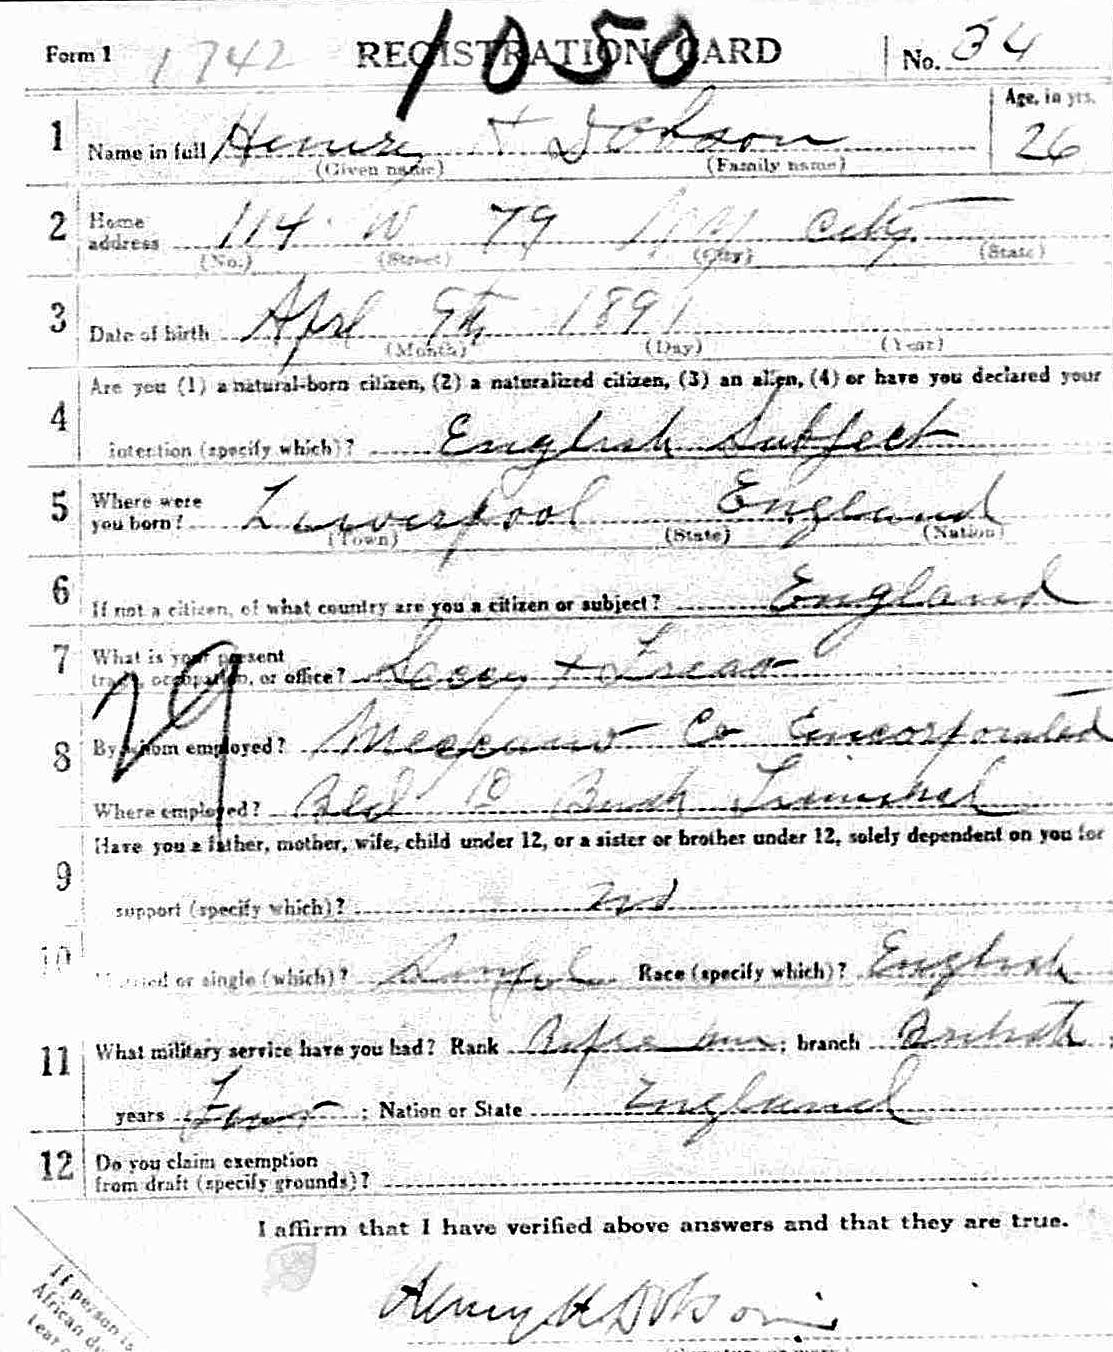 Form 1 1742 REGISTRATION CARD No. 34
1050
Age, in yrs.
1 Name in full Henry H Dobson 26
(Given name) (Family name)
2 Home address 114 W 79 N Y City
(No.) (Street) (City) (State)
3 Date of birth Aprl 9th 1891
(Month) (Day) (Year)
4 Are you (1) a natural-born citizen, (2) a naturalized citizen, (3) an alien, (4) or have you declared your
intention (specify which)? English Subject
5 Where were
you born? Liverpool England
(Town) (State) (Nation)
6 If not a citizen, of what country are you a citizen or subject? England
7 What is your present
trade, occupation, or office? Secy + Treas
29
8 By whom employed? Meccano Co Incorporated
Where employed? Bld Bush Terminal
9 Have you a father, mother, wife, child under 12, or a sister or brother under 12, solely dependent on you for
support (specify which)? no
10 Married or single (which)? Single Race (specify which)? English
11 What military service have you had? Rank Rifleman; branch ;
years Four; Nation or State England
12 Do you claim exemption
from draft (specify grounds)?
I affirm that I have verified above answers and that they are true.
Henry H Dobson
If person is
African
tear